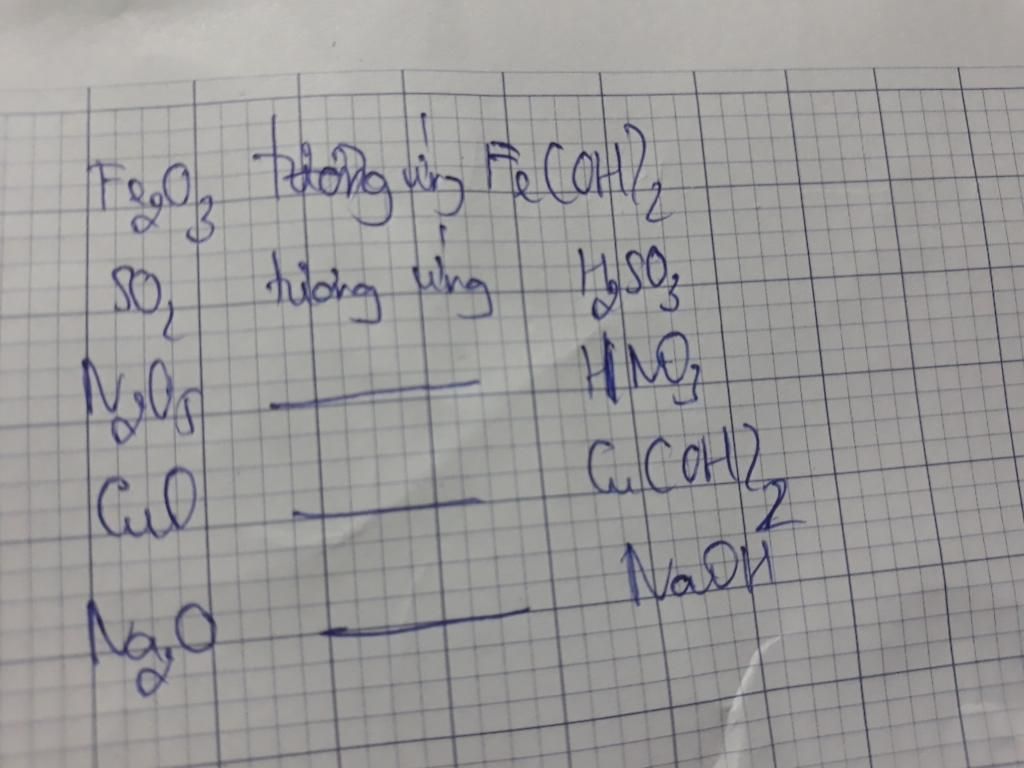 Fe₂O₃ tương ứng Fe(OH)₂
SO₂ tương ứng H₂SO₃
N₂O₅ —— HNO₃
CuO —— Cu(OH)₂
Na₂O —— NaOH